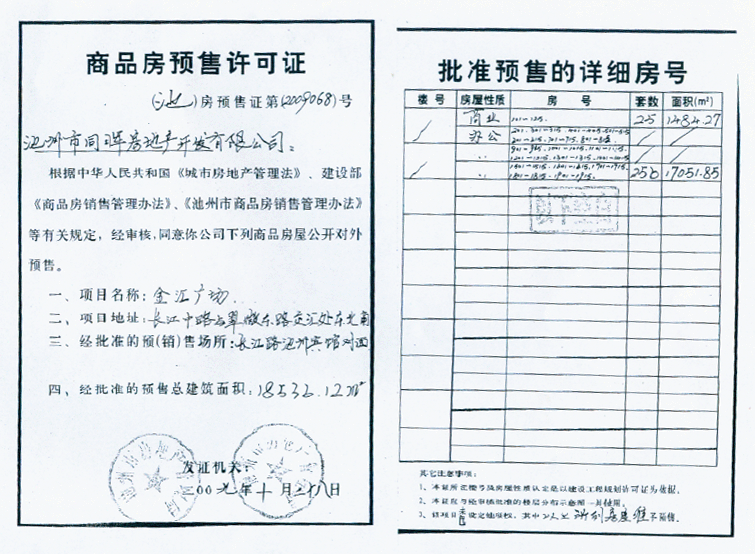 商品房预售许可证
(池)房预售证第(2009068)号
池州市同晖房地产开发有限公司:
根据中华人民共和国《城市房地产管理法》、建设部
《商品房销售管理办法》、《池州市商品房销售管理办法》
等有关规定，经审核，同意你公司下列商品房屋公开对外
预售。
一、项目名称：金汇广场
二、项目地址：长江中路与翠微东路交汇处东北角
三、经批准的预(销)售场所：长江路池州宾馆对面
四、经批准的预售总建筑面积：18536.12m²
发证机关：
二00九年十月二十八日
批准预售的详细房号
楼号 房屋性质 房号 套数 面积(m²)
商业 101-125. 25 1484.27
办公
901-915. 1001-1015. 1101-1115.
1201-1215. 1301-1315. 1401-1415.
1501-1515. 1615. 1701-1715.
1801-1815. 1901-1915. 250 17051.85
以下空白
其它注意事项：
1、本证所汇楼号及房屋性质认定是以建设工程规划许可证为依据。
2、本证应与经审核批准的楼层分布示意图一并使用。
3、该项目 设定抵押权，其中 不预售。